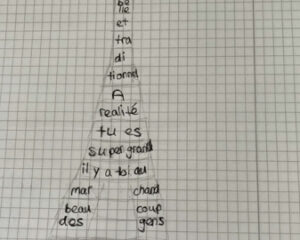 lle
et
tra
di
tionnel
A
realité
tu es
super grand
il y a
mar chand
beau coup
des gens